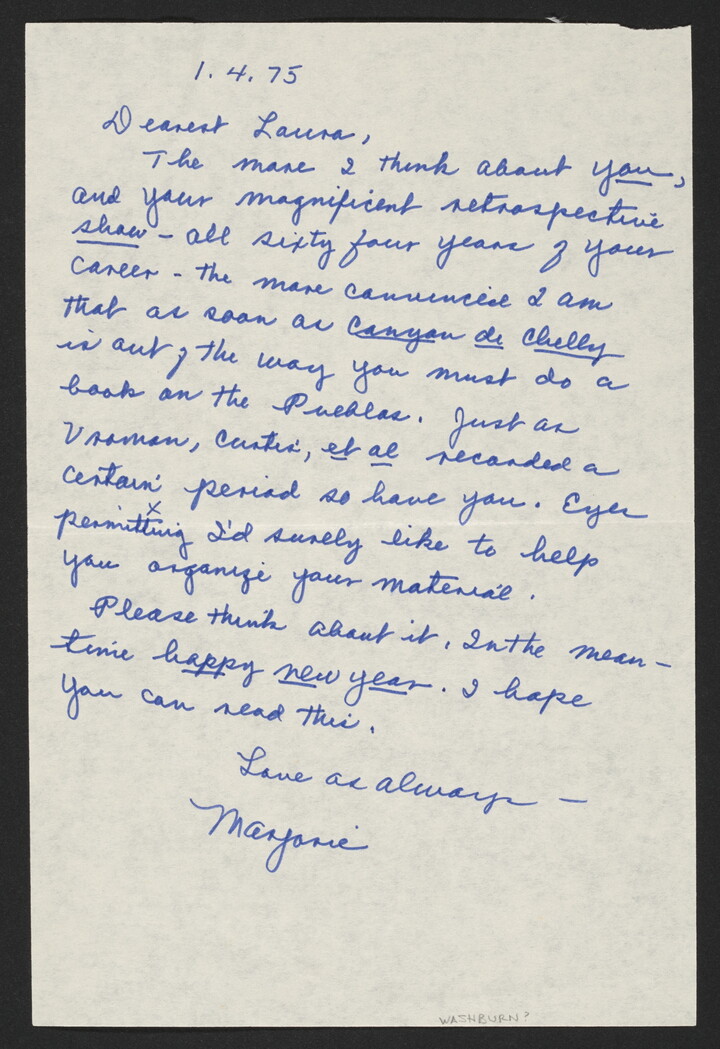 1.4.75
Dearest Laura,
The more I think about you,
and your magnificent retrospective
show - all sixty four years of your
career - the more convinced I am
that as soon as Canyon de Chelly
is out of the way you must do a
book on the Pueblos. Just as
Vroman, Curtis, et al recorded a
certain period so have you. Eyes
permitting I'd surely like to help
you organize your material.
Please think about it. In the mean-
time happy new year. I hope
you can read this.
Love as always -
Marjorie
WASHBURN?